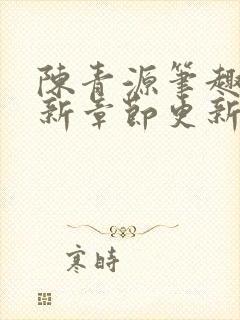 陳青源筆趣
新章節更新
寒時